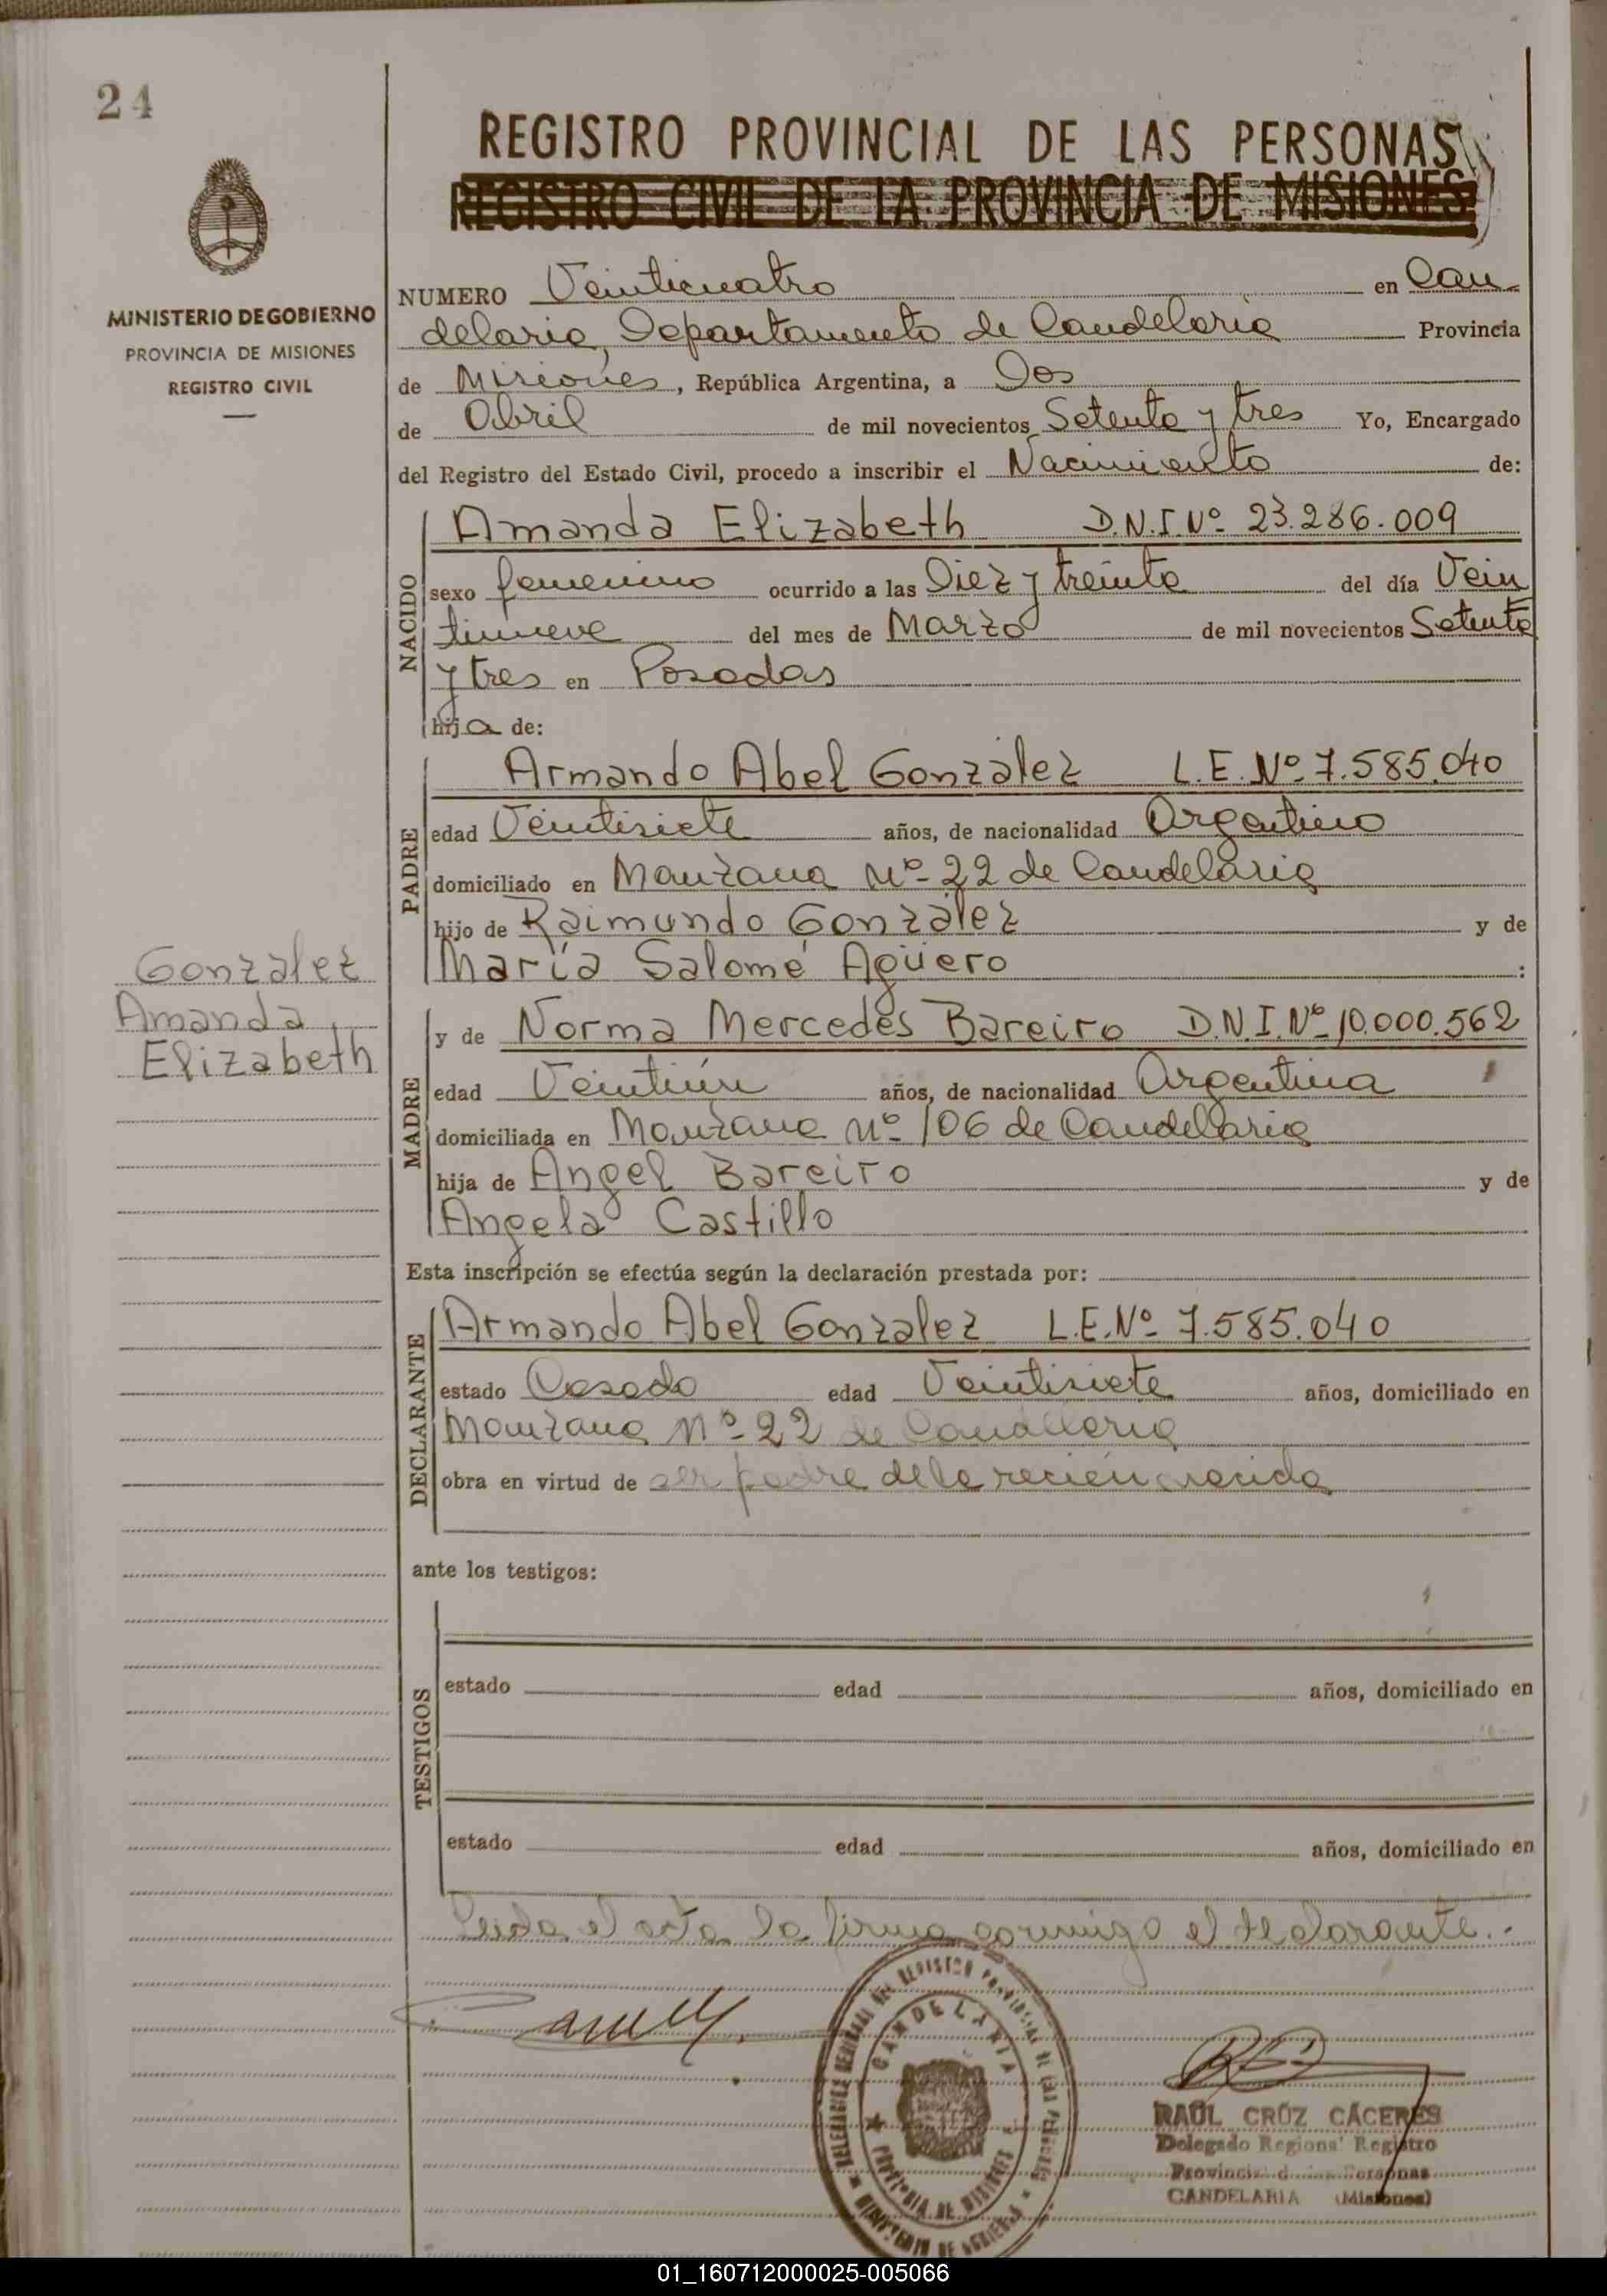 24
MINISTERIO DE GOBIERNO
PROVINCIA DE MISIONES
REGISTRO CIVIL
REGISTRO PROVINCIAL DE LAS PERSONAS
REGISTRO CIVIL DE LA PROVINCIA DE MISIONES
NUMERO Veinticuatro en Can-
delaria, Departamento de Candelaria Provincia
de Misiones, República Argentina, a Dos
de Abril de mil novecientos Setenta y tres Yo, Encargado
del Registro del Estado Civil, procedo a inscribir el Nacimiento de:
NACIDO
Amanda Elizabeth D.N.I. Nº 23.286.009
sexo femenino ocurrido a las Diez y treinta del día Vein
tinueve del mes de Marzo de mil novecientos Setenta
y tres en Posadas
hija de:
PADRE
Armando Abel González L.E. Nº 7.585.040
edad Veintisiete años, de nacionalidad Argentino
domiciliado en Manzana Nº 22 de Candelaria
hijo de Raimundo González y de
María Salomé Agüero :
Gonzalez
Amanda
Elizabeth
MADRE
y de Norma Mercedes Bareiro D.N.I. Nº 10.000.562
edad Veintiún años, de nacionalidad Argentina
domiciliada en Manzana Nº 106 de Candelaria
hija de Angel Bareiro y de
Angela Castillo
Esta inscripción se efectúa según la declaración prestada por:
DECLARANTE
Armando Abel Gonzalez L.E. Nº 7.585.040
estado Casado edad Veintisiete años, domiciliado en
Manzana Nº 22 de Candelaria
obra en virtud de ser padre de la recién nacida
ante los testigos:
TESTIGOS
estado edad años, domiciliado en
estado edad años, domiciliado en
Leida el acta la firma conmigo el declarante.-
CANDELARIA
PROVINCIA DE MISIONES
RAÚL CRUZ CÁCERES
Delegado Regional Registro
Provincial de las Personas
CANDELARIA (Misiones)
01_160712000025-005066